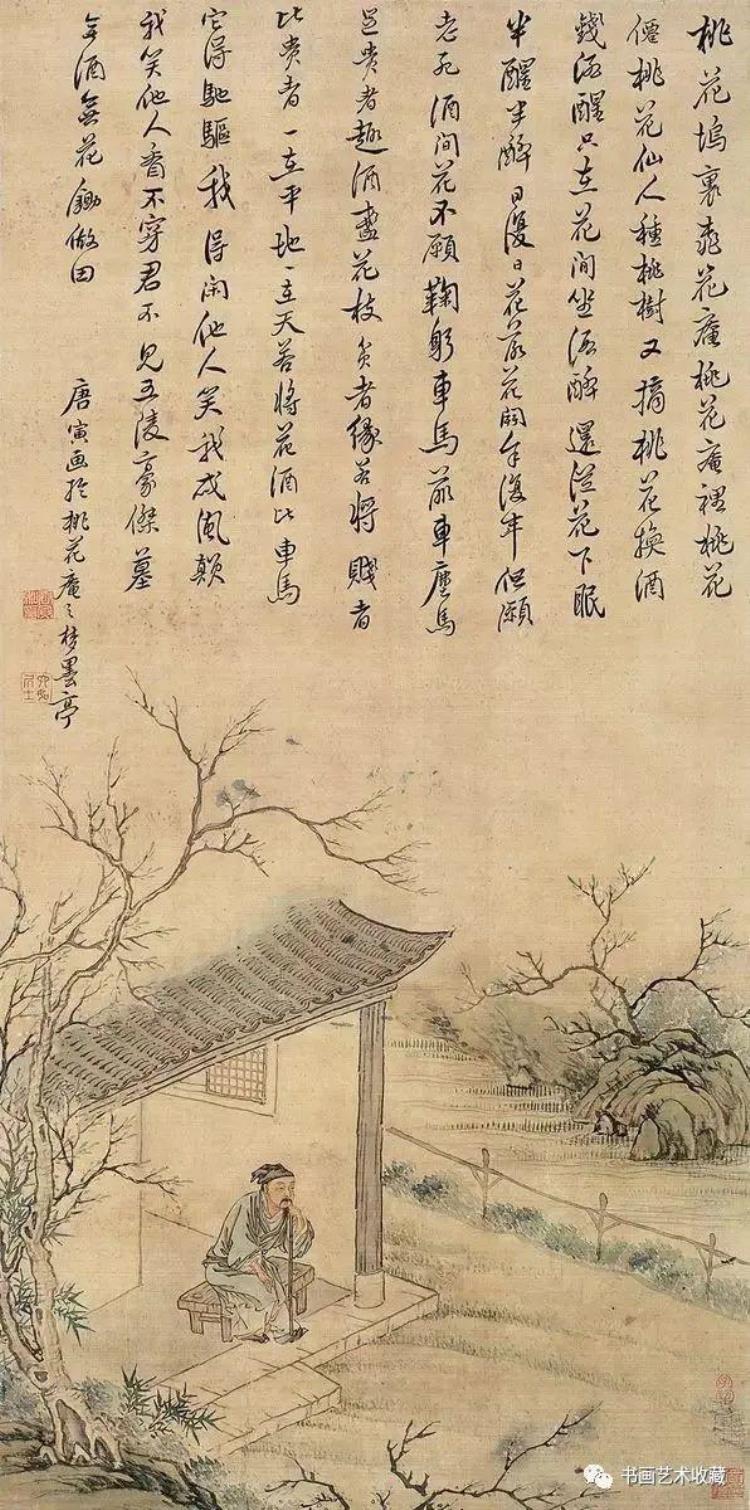 桃花塢裏桃花庵桃花庵裡桃花
僊桃花仙人種桃樹又摘桃花換酒
錢酒醒只在花間坐酒醉還從花下眠
半醒半醉日復日花落花開年復年但願
老死酒間花不願鞠躬車馬前車塵馬
足貴者趣酒盞花枝貧者緣若將賤者
比貴者一在平地一在天若將花酒比車馬
它得馳驅我得闲他人笑我成風顛
我笑他人看不穿君不見五陵豪傑墓
無酒無花鋤做田
唐寅画於桃花庵之梦墨亭
六如居士
书画艺术收藏